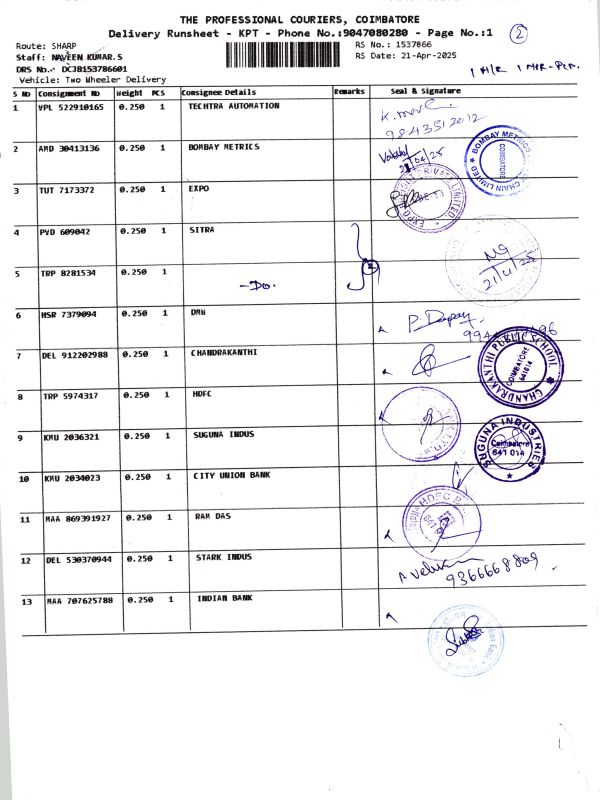 THE PROFESSIONAL COURIERS, COIMBATORE
Delivery Runsheet - KPT - Phone No.:9047080280 - Page No.:1
2
Route: SHARP
RS No.: 1537866
Staff: NAVEEN KUMAR.S
RS Date: 21-Apr-2025
DRS No.- DCJB153786601
Vehicle: Two Wheeler Delivery
S No Consignment No Weight PCS Consignee Details Remarks Seal & Signature
1 VPL 522910165 0.250 1 TECHTRA AUTOMATION
2 AMD 30413136 0.250 1 BOMBAY METRICS
BOMBAY METRICS CHAIN LIMITED
COIMBATORE
3 TUT 7173372 0.250 1 EXPO
EXPO PRIVATE LIMITED
4 PVD 609042 0.250 1 SITRA
5 TRP 8281534 0.250 1 -Do.
21/4/25
6 HSR 7379094 0.250 1 DMW
7 DEL 912202988 0.250 1 CHANDRAKANTHI
CHANDRAKANTHI PUBLIC SCHOOL
COIMBATORE
641014
8 TRP 5974317 0.250 1 HDFC
9 KMU 2036321 0.250 1 SUGUNA INDUS
SUGUNA INDUSTRIES
Coimbatore
641 014
10 KMU 2034023 0.250 1 CITY UNION BANK
11 MAA 869391927 0.250 1 RAM DAS
HDFC
12 DEL 530370944 0.250 1 STARK INDUS
9366668809
13 MAA 707625788 0.250 1 INDIAN BANK